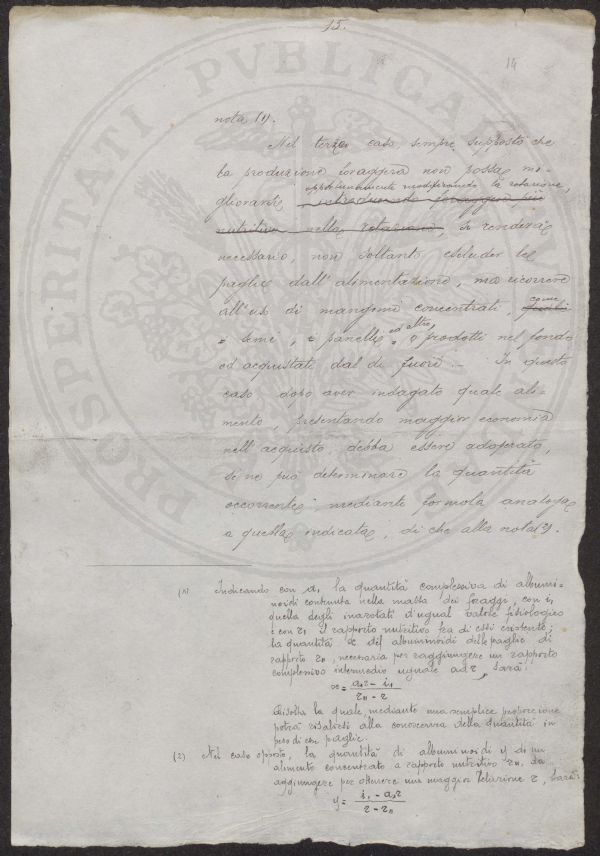 15.
14
PROSPERITATI PUBLICAE
nota (1).
Nel terzo caso, sempre supposto che
la produzione foraggera non possa mi-
opportunamente modificando la rotazione,
gliorarsi, introducendo foraggi più
nutritivi nella rotazione, si renderà
necessario, non soltanto escluder le
paglie dall'alimentazione, ma ricorrere
all'uso di mangimi concentrati, come
semi, panello ed altro, o prodotti nel fondo
od acquistati dal di fuori. — In questo
caso dopo aver indagato quale ali-
mento, presentando maggior economia
nell'acquisto, debba essere adoperato,
se ne può determinare la quantità
occorrente, mediante formola analoga
a quella indicata, di che alla nota (2).
(1) Indicando con a, la quantità complessiva di albumi-
noidi contenuta nella massa dei foraggi, con i,
quella degli inazotati d'ugual valore fisiologico
e con r, il rapporto nutritivo fra di essi esistente;
la quantità x del albuminoidi delle paglie di
rapporto r,, necessaria per raggiungere un rapporto
complessivo intermedio uguale ad r, sarà:
x = a,r - i, / r,, - r
risolta la quale, mediante una semplice proporzione
potrà risalirsi alla conoscenza della quantità in
peso di esse paglie.
(2) Nel caso opposto, la quantità di albuminoidi y di un
alimento concentrato a rapporto nutritivo r,, da
aggiungere per ottenere una maggior relazione r, sarà:
y = i, - a,r / r - r,,